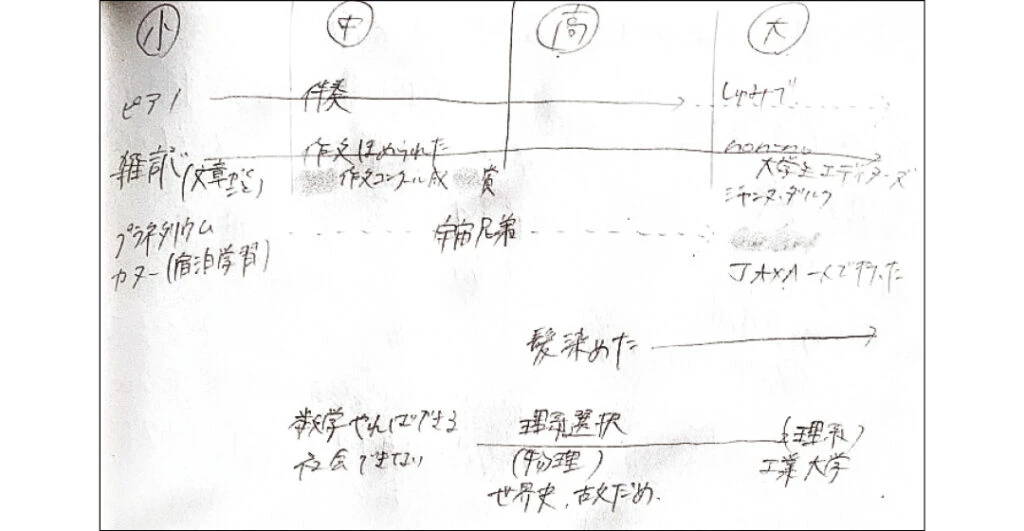 小 中 高 大
ピアノ 伴奏 しゅみで
雑記 作文ほめられた non-no
(文章かくこと) 作文コンクール 賞 大学生エディターズ
ジャンヌ・ダルク
プラネタリウム 宇宙兄弟
カヌー(宿泊学習) JAXA一人で行った
髪染めた
数学やればできる 理系選択 (理系)
社会できない (物理) 工業大学
世界史、古文だめ.